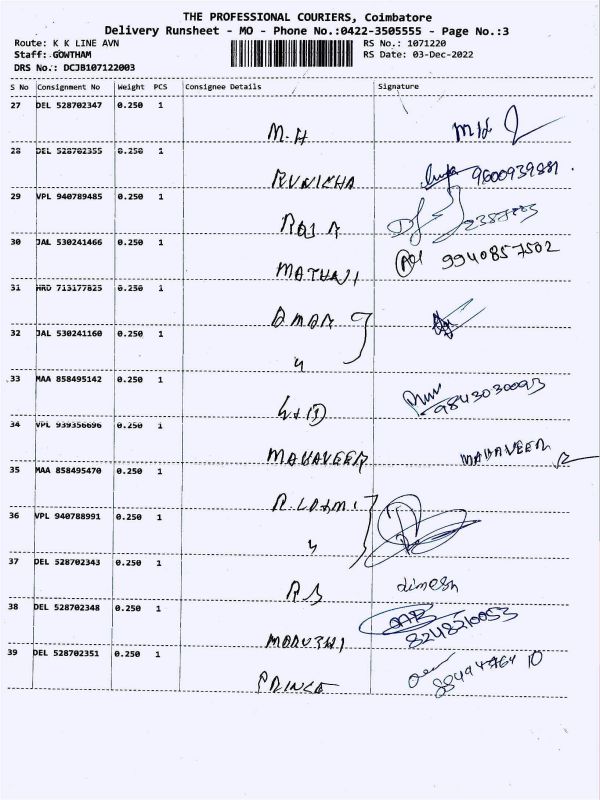 THE PROFESSIONAL COURIERS, Coimbatore
Delivery Runsheet - MO - Phone No.:0422-3505555 - Page No.:3
Route: K K LINE AVN
RS No.: 1071220
Staff: GOWTHAM
RS Date: 03-Dec-2022
DRS No.: DCJB107122003
S No Consignment No Weight PCS Consignee Details Signature
27 DEL 528702347 0.250 1
M-H
28 DEL 528702355 0.250 1
RUNICHA 9600939881
29 VPL 940789485 0.250 1
RAJA
30 JAL 530241466 0.250 1
MATHAJI 9940857502
31 HRD 713177825 0.250 1
AMAR
32 JAL 530241160 0.250 1
"
33 MAA 858495142 0.250 1
9843030093
34 VPL 939356696 0.250 1
MAHAVEER MAHAVEER
35 MAA 858495470 0.250 1
R. LAXMI
36 VPL 940788991 0.250 1
"
37 DEL 528702343 0.250 1
RS dimesh
38 DEL 528702348 0.250 1
MARUTHI 8248210053
39 DEL 528702351 0.250 1
PRINCE